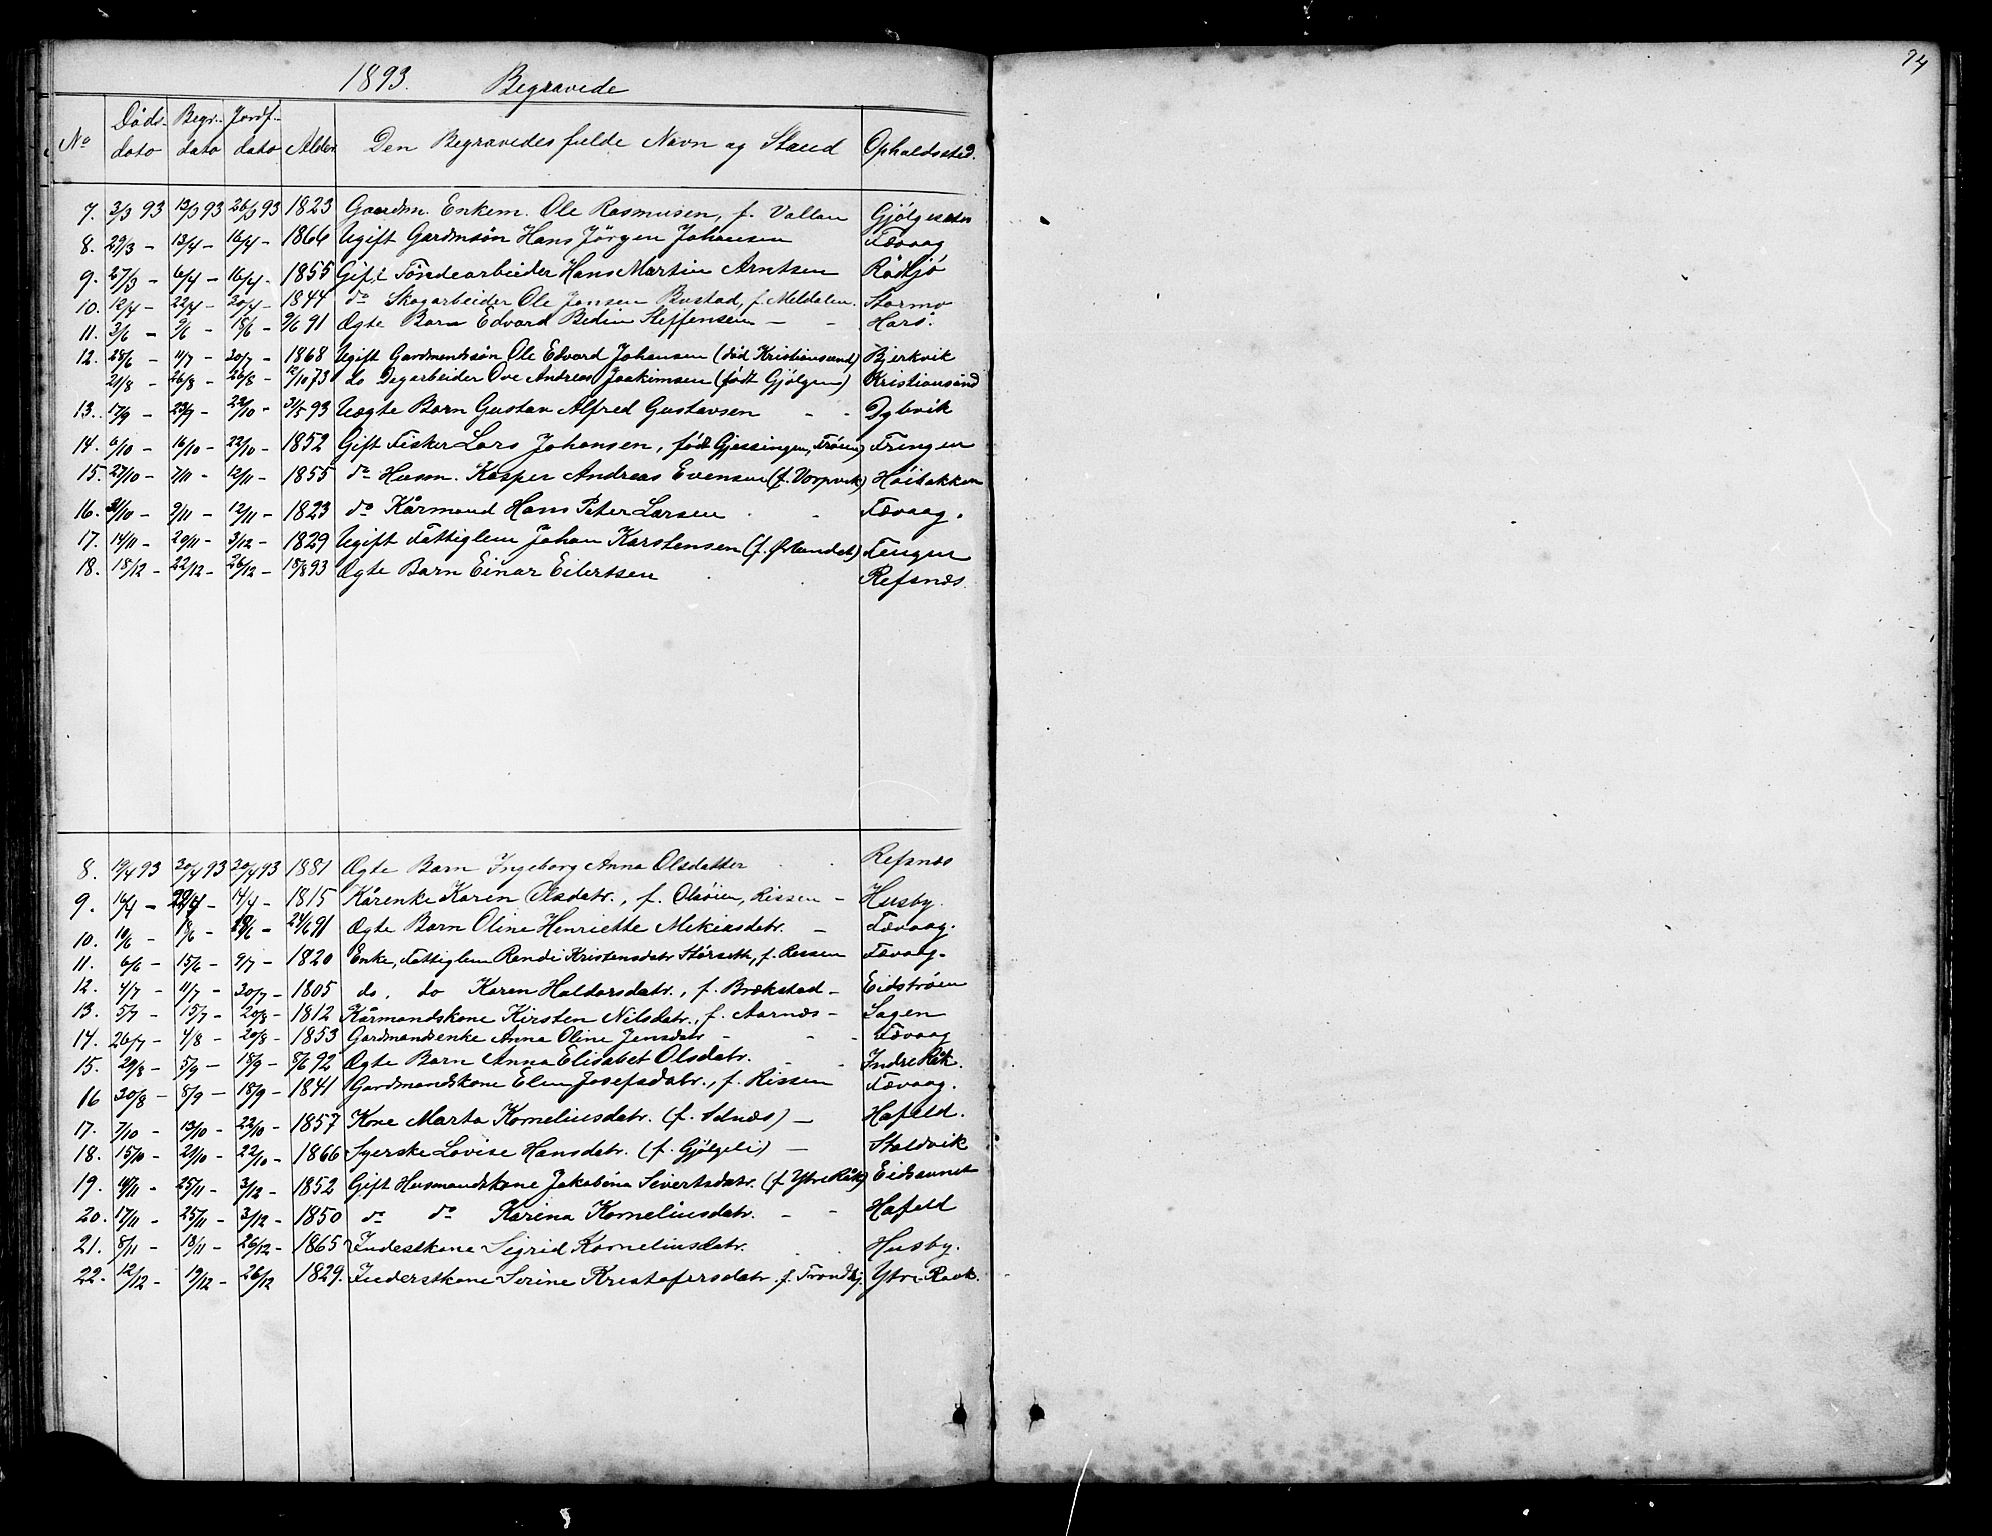 94
1893. Begravede
No Döds- dato Begr.- dato Jordf- dato Alder Den Begravedes fulde Navn og Stand Opholdssted.
7. 3/3 93 13/3 93 26/3 93 1823 Gaardm. Enkem. Ole Rasmusen, f. Vallan
8. 29/3 - 13/4 - 16/4 - 1866 Ugift Gardmsøn Hans Jörgen Johansen Tævaag
9. 27/3 - 6/4 - 16/4 - 1855 Gift Töndearbeider Hans Martin Arntsen Rödsjö
10. 12/4 - 22/4 - 30/4 - 1844 do Skogarbeider Ole Jonsen Bustad, f. Meldalen. Stormo
11. 3/6 - 9/6 - 18/6 - 9/6 91 Ægte Barn Edvard Bedin Steffensen - - Harö.
12. 28/6 - 11/7 - 30/7 - 1868 Ugift Gardmandssøn Ole Edvard Johansen (død Kristiansund) Bjerkvik
21/8 - 26/8 - 26/8 - 12/10 73 do Dagarbeider Ove Andreas Joakimsen (født Gjölgen) Kristiansund
13. 17/9 - 23/9 - 22/10 - 31/5 93 Uægte Barn Gustav Alfred Gustavsen - - Dybvik
14. 6/10 - 16/10 - 22/10 - 1852 Gift Fisker Lars Johansen, født Gjæssingen, Fröien)
15. 27/10 - 7/11 - 12/11 - 1855 do Husm. Kasper Andreas Evensen (f. Vorpvik) Höibakken
16. 31/10 - 9/11 - 12/11 - 1823 do Kårmand Hans Peter Larsen - Tævaag.
17. 14/11 - 20/11 - 3/12 - 1829 Ugift Fattiglem Johan Karstensen (f. Ørlandet)
18. 18/12 - 22/12 - 26/12 - 18/8 93 Ægte Barn Einar Eilertsen Refsnæs
8. 19/4 93 30/4 93 30/4 93 1881 Ægte Barn Ingeborg Anna Olsdatter Refsnæs
9. 16/4 - 22/4 - 14/4 - 1815 Kårenke Karen Olsdatr., f. Olsöien, Rissen - Husby.
10. 10/6 - 18/6 - 18/6 - 24/6 91 Ægte Barn Oline Henriette Mekiasdatr. - Tævaag.
11. 6/6 - 15/6 - 9/7 - 1820 Enke, Fattiglem Randi Kristensdatr Störseth, f. Rissen Tævaag.
12. 4/7 - 11/7 - 30/7 - 1805 do, do Karen Haldorsdatr., f. Brækstad - Eidströen
13. 5/7 - 15/7 - 20/8 - 1812 Kårmandskone Kirsten Nilsdatr., f. Aarnæs - Sagen
14. 26/7 - 4/8 - 20/8 - 1853 Gardmandsenke Anna Oline Jensdatr - - - Tævaag
15. 29/8 - 5/9 - 18/9 - 8/6 92 Ægte Barn Anna Elisabet Olsdatr. - - Indre Råk.
16 30/8 - 8/9 - 18/9 - 1841 Gardmandskone Elen Josefsdatr., f. Rissen Tævaag.
17. 7/10 - 13/10 - 22/10 - 1857 Kone Marta Korneliusdatr. (f. Selnæs) - Hafeld.
18. 15/10 - 20/10 - 22/10 - 1866 Syerske Lovise Hansdatr. (f. Gjölgeli) - Staldvik
19. 4/11 - 25/11 - 3/12 - 1852 Gift Husmandskone Jakobina Sivertsdatr. (f. Ytre Råk) Eidsvnet
20. 17/11 - 25/11 - 3/12 - 1850 do do Karina Korneliusdatr. - - Hafeld
21. 8/11 - 18/11 - 26/12 - 1865 Inderstkone Sigrid Korneliusdatr. Husby.
22. 12/12 - 19/12 - 26/12 1829. Inderstkone Serine Kristofersdatr. f. Trondhj. Ytre Raak.